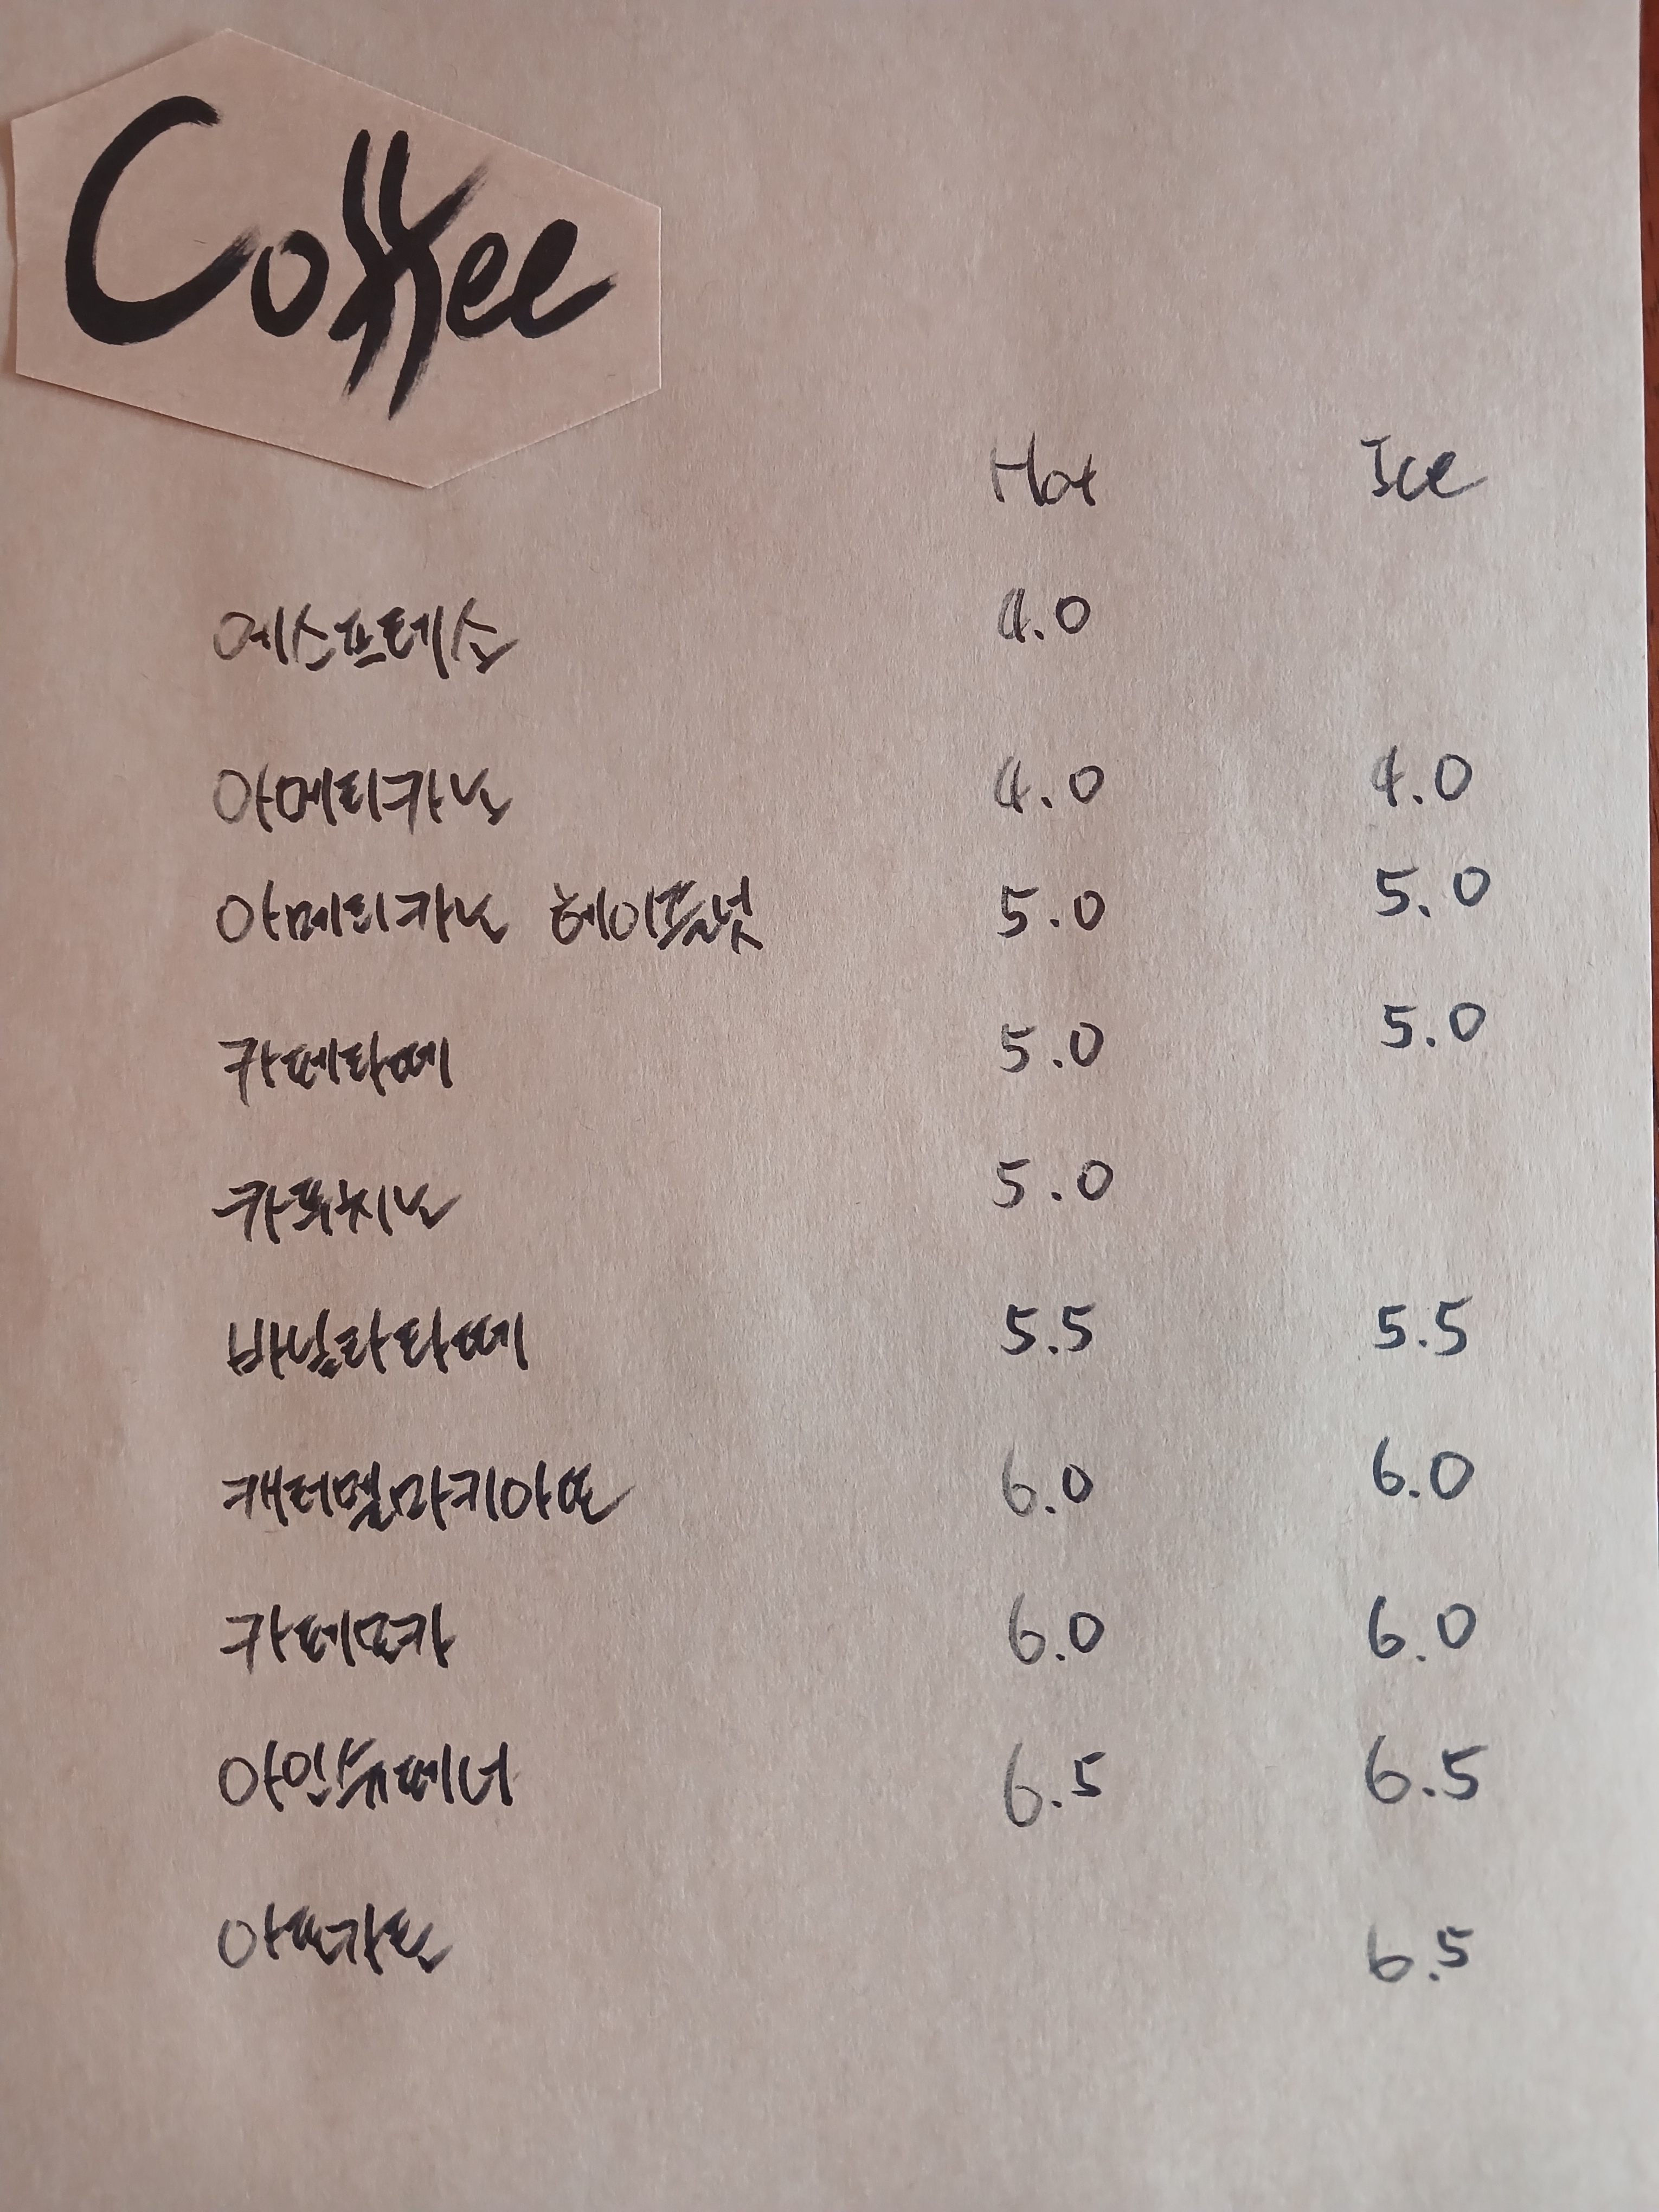 Coffee
Hot Ice
에스프레소 4.0
아메리카노 4.0 4.0
아메리카노 헤이즐넛 5.0 5.0
카페라떼 5.0 5.0
카푸치노 5.0
바닐라라떼 5.5 5.5
캐러멜마키아또 6.0 6.0
카페모카 6.0 6.0
아인슈페너 6.5 6.5
아포가토 6.5